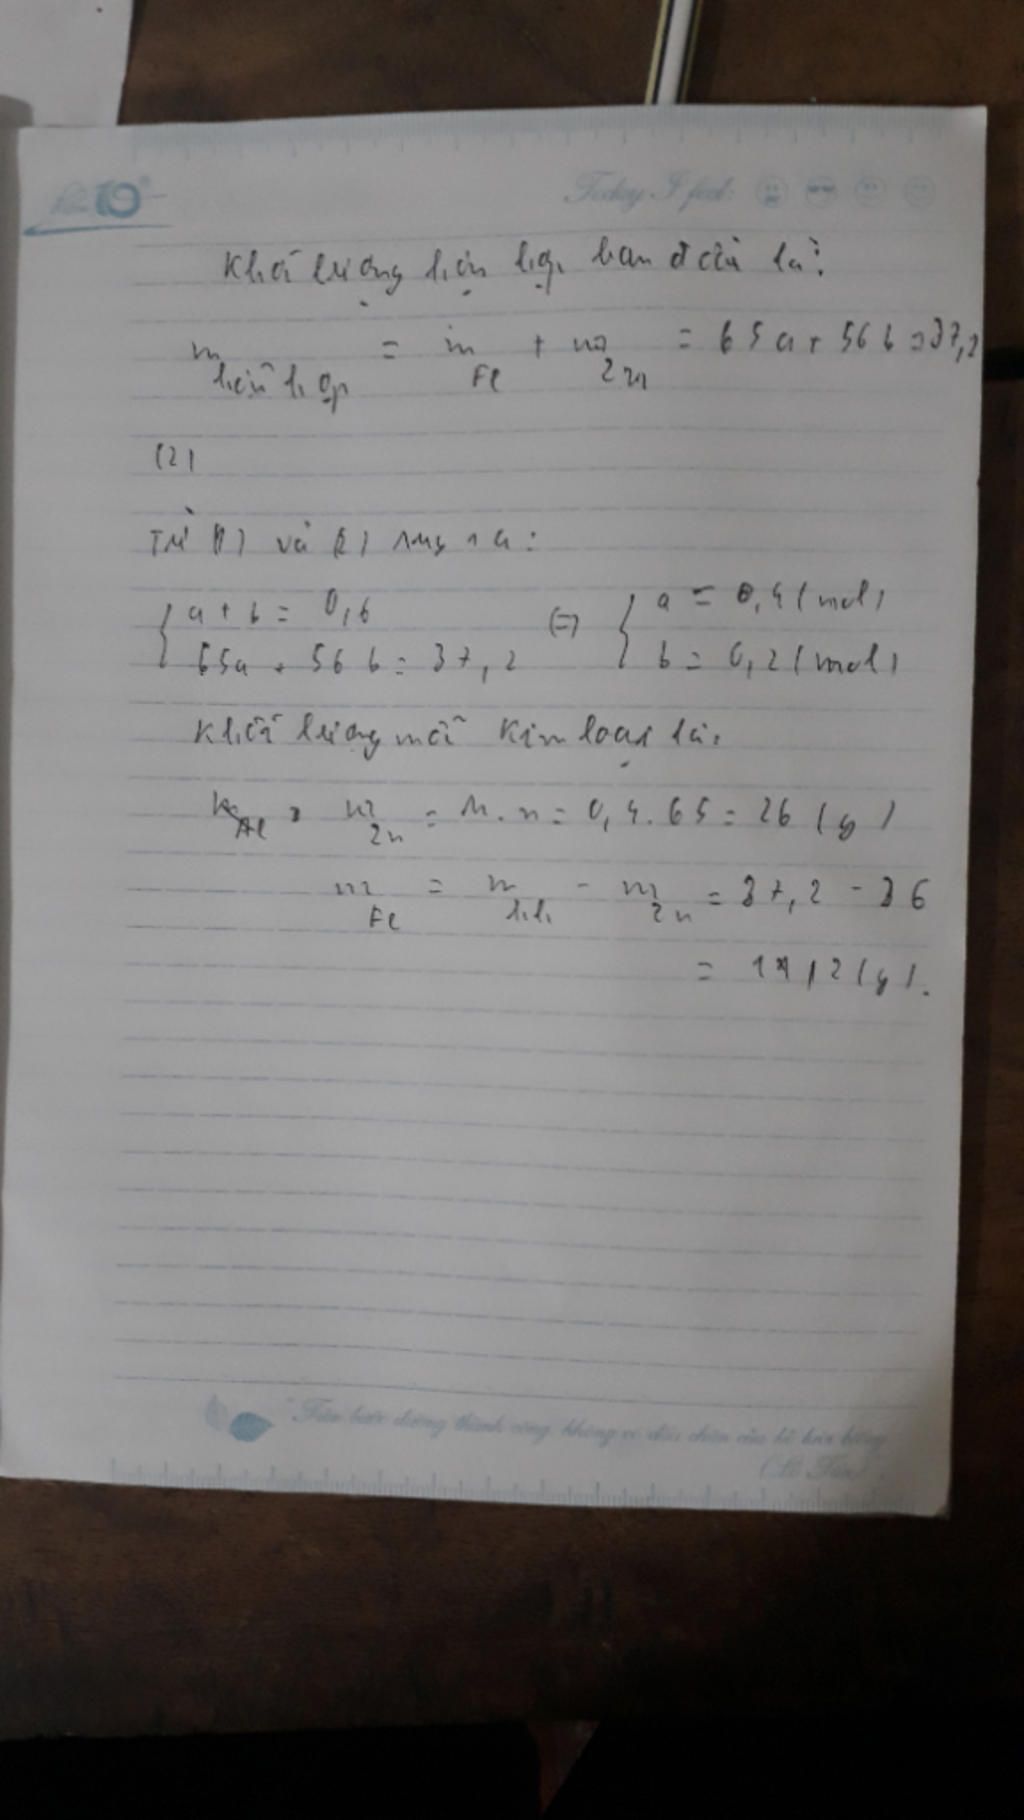 10
Today I feel:
Khối lượng hỗn hợp ban đầu là:
m hỗn hợp = m Fe + m Zn = 65a + 56b = 37,2
(2)
Từ (1) và (2) suy ra:
a + b = 0,6 (=) a = 0,4 (mol)
65a + 56b = 37,2 b = 0,2 (mol)
Khối lượng mỗi kim loại là:
m Zn = M.n = 0,4.65 = 26 (g)
m Fe = m h.h - m Zn = 37,2 - 26
= 11,2 (g).
"Trên bước đường thành công, không có dấu chân của kẻ lười biếng"
(Lỗ Tấn)